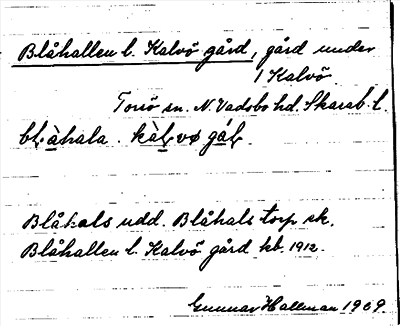 Blåhallen l. Kalvö gård, gård under
1 Kalvö
Torsö sn. N. Vadsbo hd. Skarab. l.
kàl vø
Blåhals udd. Blåhals torp sk.
Blåhallen l. Kalvö gård kb. 1912.
Gunnar Hallman 1969.